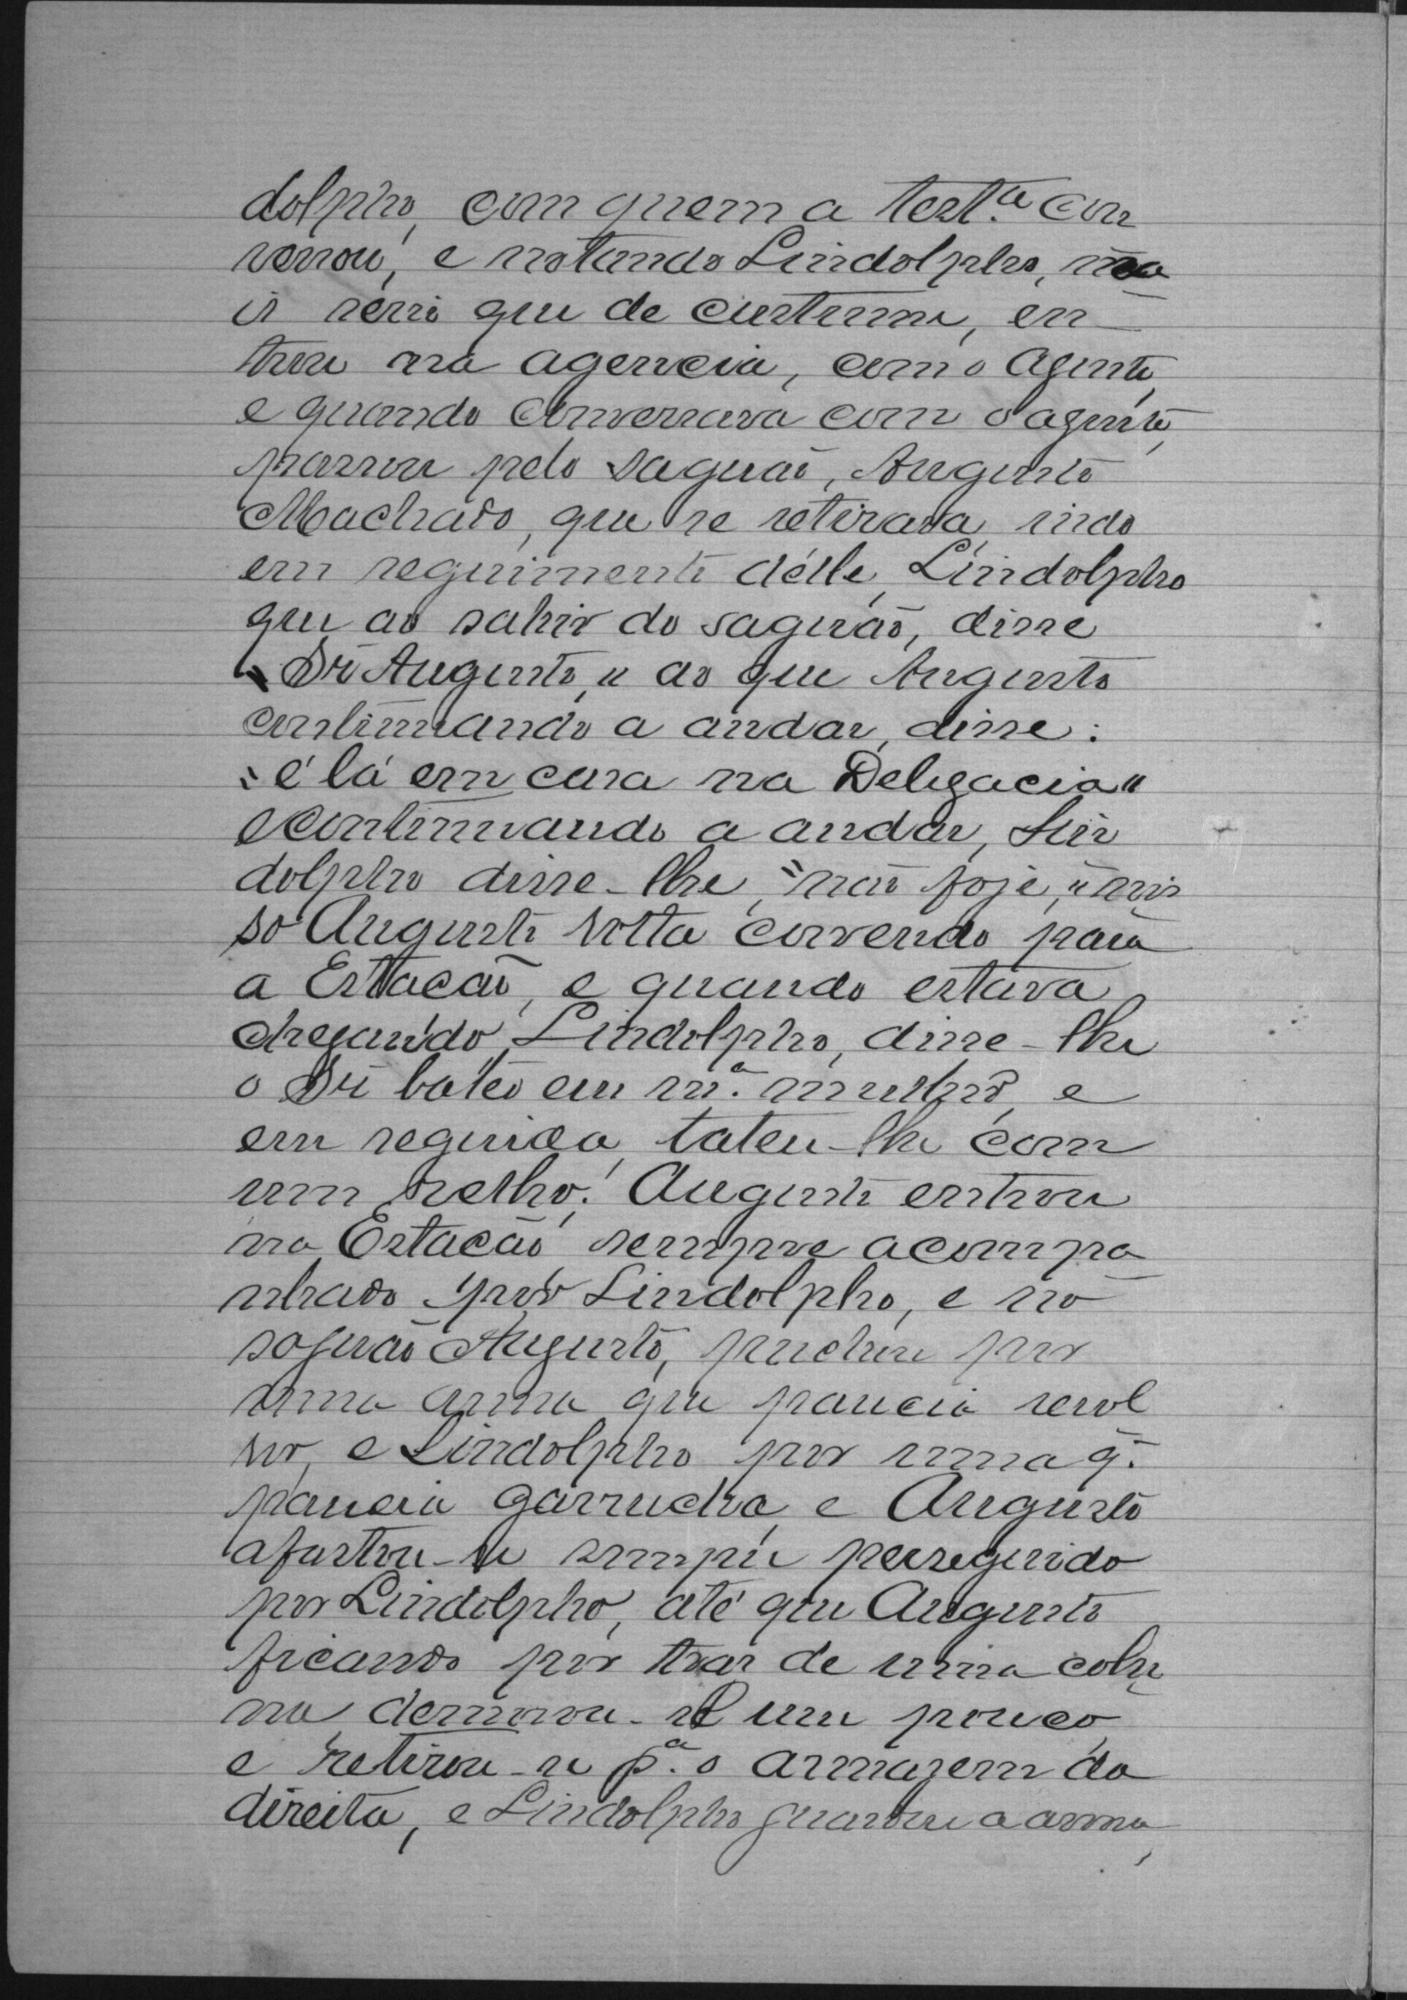 dolpho, com quem a test.ª con
versou, e notando Lindolpho, ma
is serio que de custume, en
trou na agencia, com o agente,
e quando conversava com o agente,
passou pelo saguão, Augusto
Machado, que se retirava, indo
em seguimento délle, Lindolpho
que ao sahir do saguão, disse
"Sr Augusto," ao que Augusto
continuando a andar, disse:
"é lá em casa na Delegacia"
e continuando a andar, Lin
dolpho disse-lhe, "não foje," nis
so Augusto volta correndo para
a Estacão, e quando estava
chegando, Lindolpho, disse-lhe
o Sr bateo em m.ª mulher, e
em seguida, bateu-lhe com
um relho. Augusto entrou
na Estacão sempre acompa
nhado por Lindolpho, e no
saguão Augusto, puchou por
uma arma que parecia revol
ver, e Lindolpho por uma q.
parecia garrucha, e Augusto
afastou-se sempre perseguido
por Lindolpho, até que Augusto
ficando por traz de uma colu
na, demorou-se um pouco
e retirou-se p.ª o armazem da
direita, e Lindolpho guardou a arma,